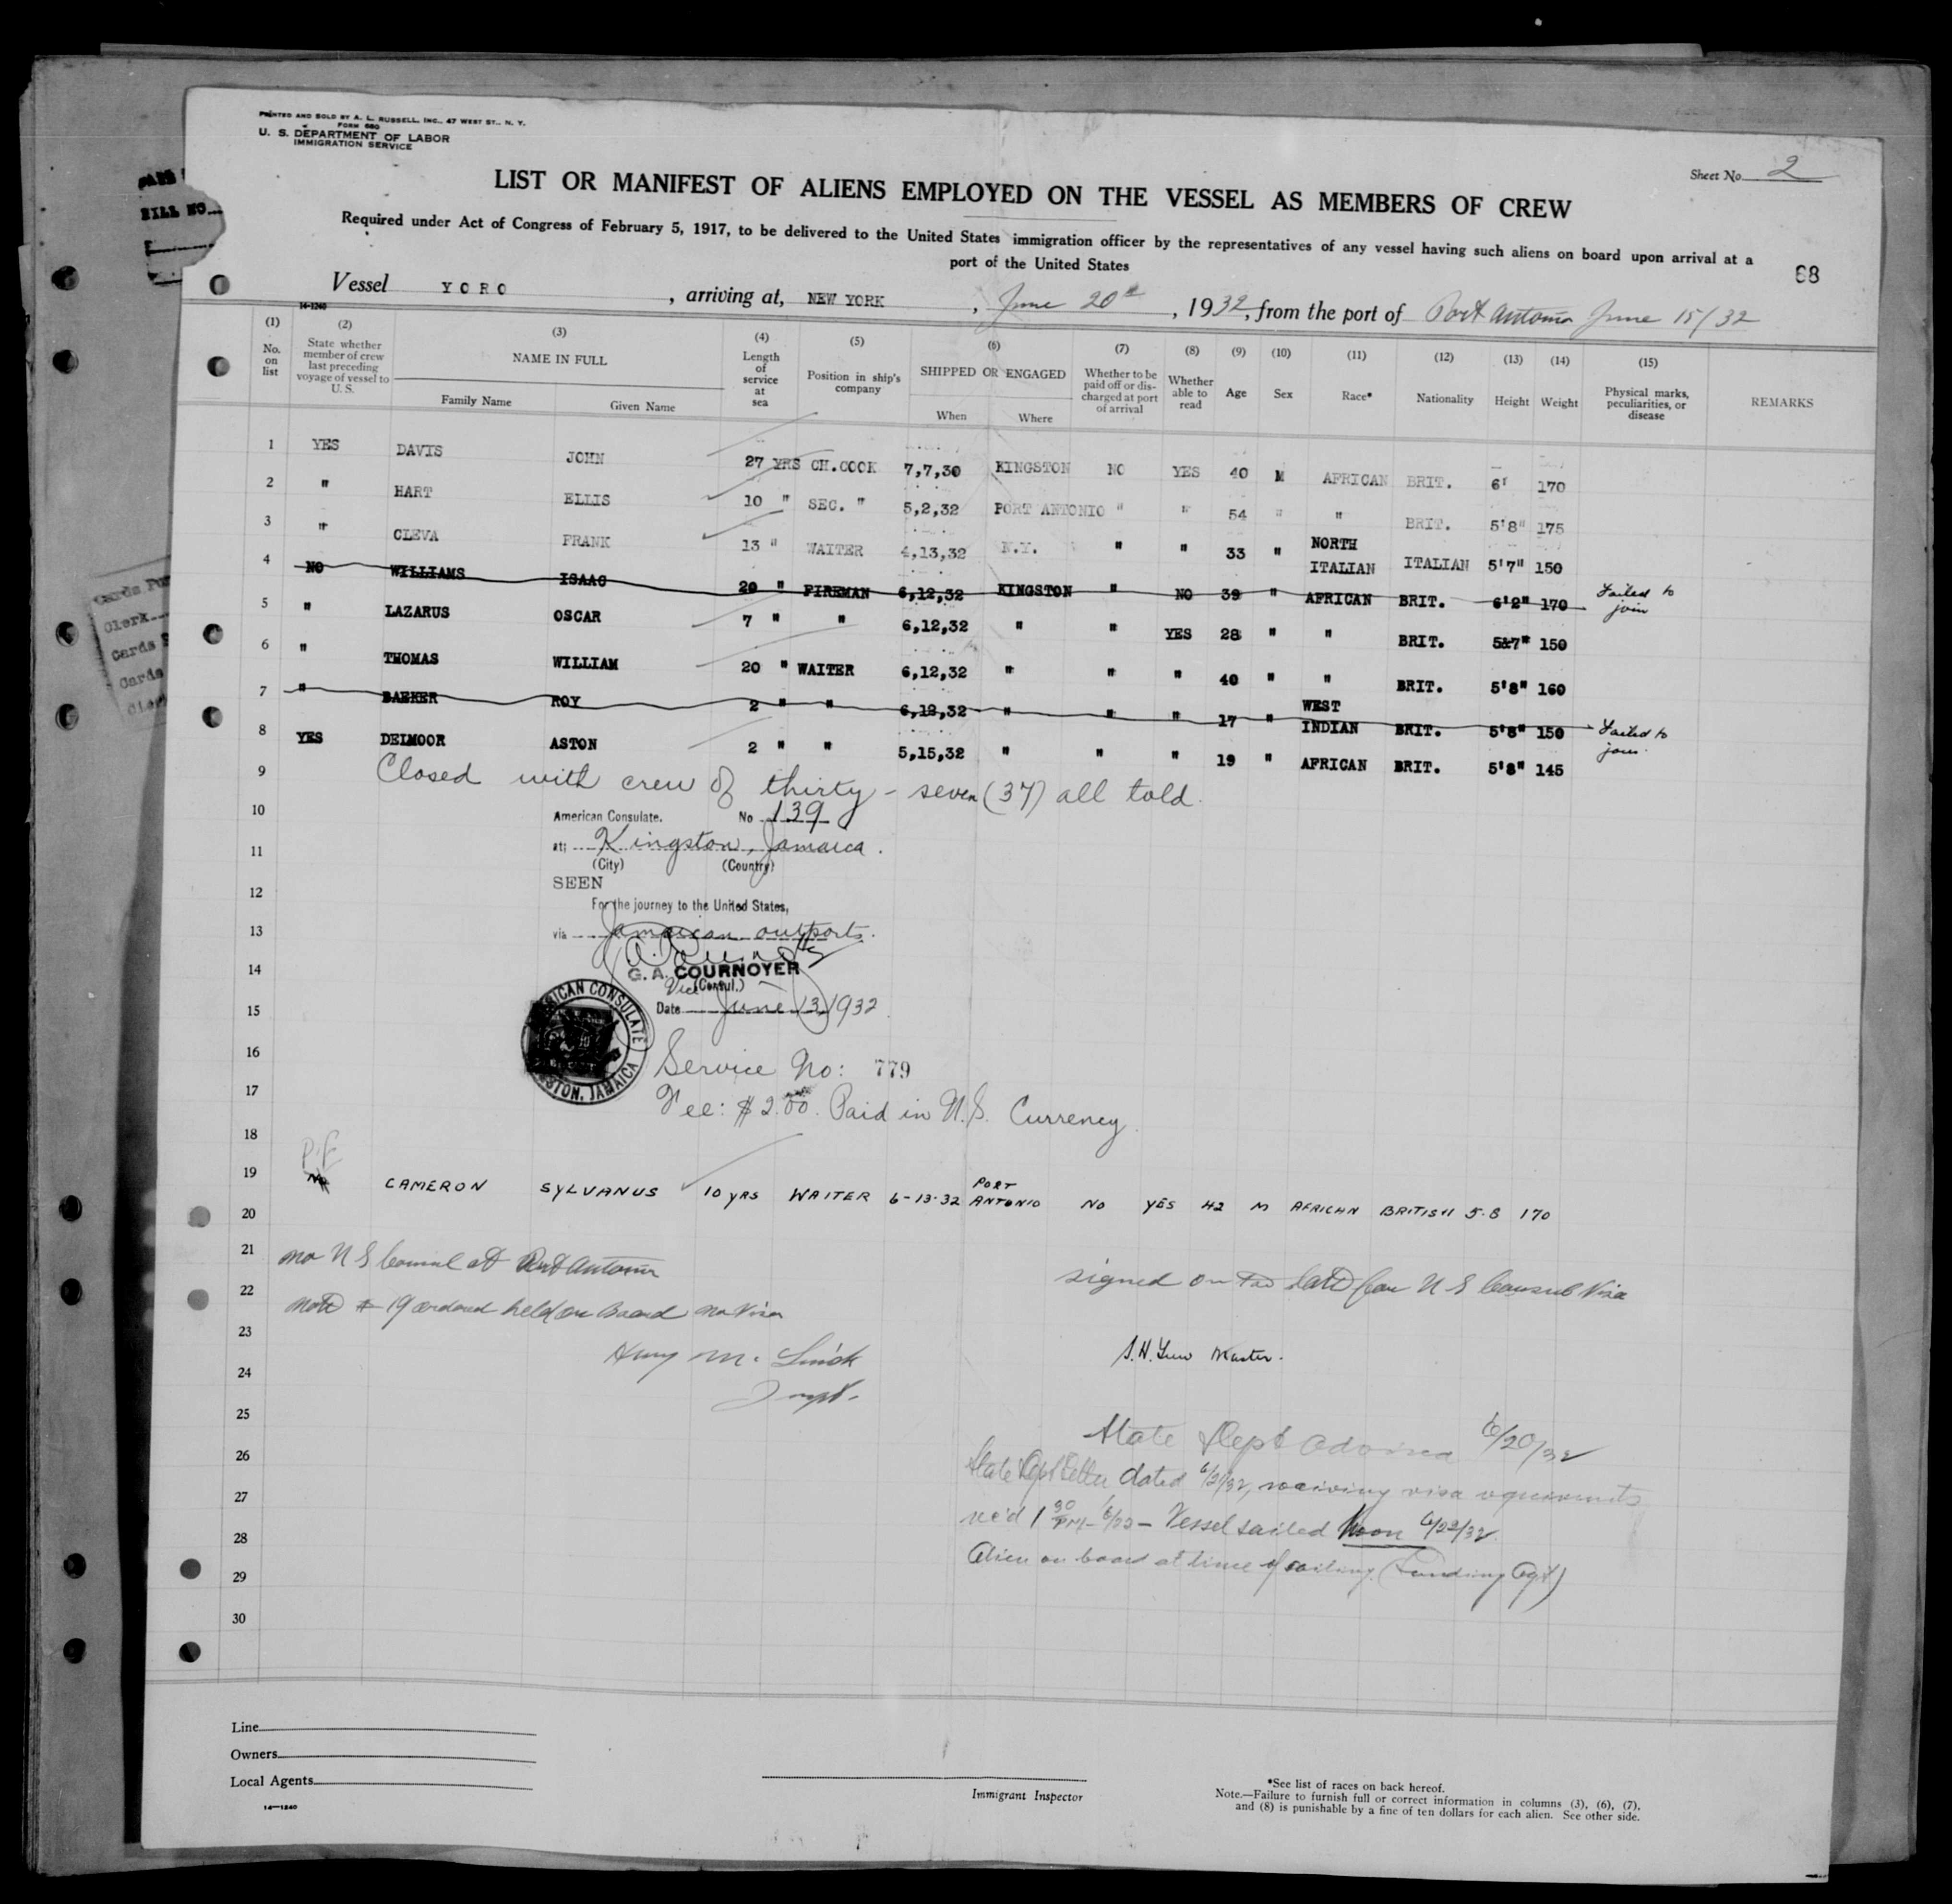 PRINTED AND SOLD BY A. L. RUSSELL, INC., 47 WEST ST., N. Y.
FORM 660
U. S. DEPARTMENT OF LABOR
IMMIGRATION SERVICE
Sheet No. 2
LIST OR MANIFEST OF ALIENS EMPLOYED ON THE VESSEL AS MEMBERS OF CREW
Required under Act of Congress of February 5, 1917, to be delivered to the United States immigration officer by the representatives of any vessel having such aliens on board upon arrival at a
port of the United States
68
BILL NO.
Vessel YORO, arriving at, NEW YORK, June 20th, 1932, from the port of Port Antonio June 15/32
14-1240
(1) (2) (3) (4) (5) (6) (7) (8) (9) (10) (11) (12) (13) (14) (15)
No. on list State whether member of crew last preceding voyage of vessel to U. S. NAME IN FULL Family Name Given Name Length of service at sea Position in ship's company SHIPPED OR ENGAGED When Where Whether to be paid off or discharged at port of arrival Whether able to read Age Sex Race* Nationality Height Weight Physical marks, peculiarities, or disease REMARKS
1 YES DAVIS JOHN 27 YRS CH.COOK 7,7,30 KINGSTON NO YES 40 M AFRICAN BRIT. 6' 170
2 " HART ELLIS 10 " SEC. " 5,2,32 PORT ANTONIO " " 54 " " BRIT. 5'8" 175
3 " CLEVA FRANK 13 " WAITER 4,13,32 N.Y. " " 33 " NORTH ITALIAN ITALIAN 5'7" 150
4 NO WILLIAMS ISAAC 20 " FIREMAN 6,12,32 KINGSTON " NO 39 " AFRICAN BRIT. 6'2" 170 Failed to join
5 " LAZARUS OSCAR 7 " " 6,12,32 " " YES 28 " " BRIT. 5&7" 150
6 " THOMAS WILLIAM 20 " WAITER 6,12,32 " " " 40 " " BRIT. 5'8" 160
7 " BARKER ROY 2 " " 6,12,32 " " " 17 " WEST INDIAN BRIT. 5'8" 150 Failed to join.
8 YES DEIMOOR ASTON 2 " " 5,15,32 " " " 19 " AFRICAN BRIT. 5'8" 145
9 Closed with crew of thirty-seven (37) all told.
10 American Consulate. No 139
11 at; Kingston, Jamaica.
(City) (Country)
12 SEEN
For the journey to the United States,
13 via Jamaican outports.
14 G. A. COURNOYER
Vice (Consul.)
15 Date June 13, 1932
AMERICAN CONSULATE
KINGSTON, JAMAICA
16 Service No: 779
17 Fee: $2.00. Paid in U.S. Currency.
18
P.F.
19 No CAMERON SYLVANUS 10 YRS WAITER 6-13-32 PORT ANTONIO NO YES 42 M AFRICAN BRITISH 5.8 170
20
21 no U S Consul at Port Antonio
signed on too late for U S Consul Visa
22 Note # 19 ordered held on Board no Visa
23
24 Inspt.
Master.
25 State Dept advised 6/20/32
26 State Dept Letter dated 6/21/32, waiving visa requirements
27 rec'd 1 30 PM - 6/22 - Vessel sailed Noon 6/22/32
28 Alien on board at time of sailing. (Landing Agt)
29
30
Line
Owners
Local Agents
14-1240
Immigrant Inspector
*See list of races on back hereof.
Note.—Failure to furnish full or correct information in columns (3), (6), (7),
and (8) is punishable by a fine of ten dollars for each alien. See other side.